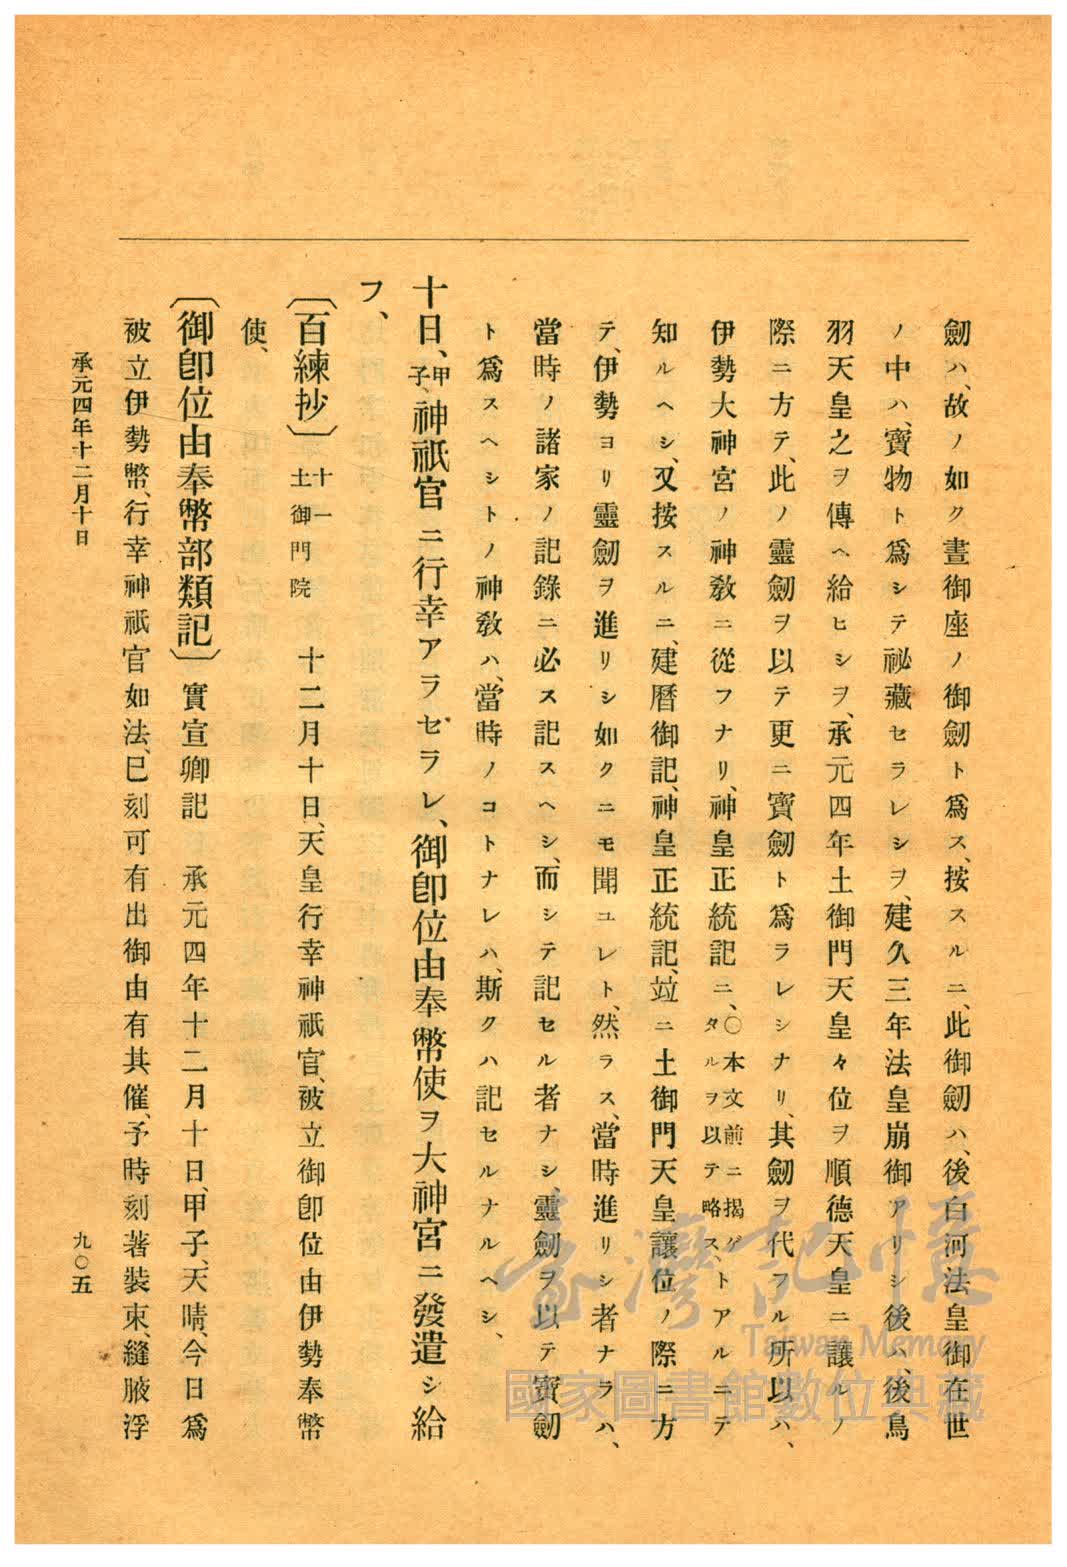 劒ハ、故ノ如ク晝御座ノ御劒ト爲ス、按スルニ、此御劒ハ、後白河法皇御在世
ノ中ハ、寶物ト爲シテ祕藏セラレシヲ、建久三年法皇崩御アリシ後ハ、後鳥
羽天皇之ヲ傳ヘ給ヒシヲ、承元四年土御門天皇々位ヲ順德天皇ニ讓ルノ
際ニ方テ、此ノ靈劒ヲ以テ更ニ寶劒ト爲ラレシナリ、其劒ヲ代フル所以ハ、
伊勢大神宮ノ神敎ニ從フナリ、神皇正統記ニ、〇本文前ニ揭グタルヲ以テ略ス、トアルニテ
知ルヘシ、又按スルニ、建曆御記、神皇正統記、竝ニ土御門天皇讓位ノ際ニ方
テ、伊勢ヨリ靈劒ヲ進リシ如クニモ聞ユレト、然ラス、當時進リシ者ナラハ、
當時ノ諸家ノ記錄ニ必ス記スヘシ、而シテ記セル者ナシ、靈劒ヲ以テ寶劒
ト爲スヘシトノ神敎ハ、當時ノコトナレハ、斯クハ記セルナルヘシ、
十日、甲子、神祇官ニ行幸アラセラレ、御卽位由奉幣使ヲ大神宮ニ發遣シ給
フ、
〔百練抄〕十一土御門院 十二月十日、天皇行幸神祇官、被立御卽位由伊勢奉幣
使、
〔御卽位由奉幣部類記〕實宣卿記 承元四年十二月十日、甲子、天晴、今日爲
被立伊勢幣、行幸神祇官如法、巳刻可有出御由有其催、予時刻著裝束、縫腋浮
承元四年十二月十日
九〇五
臺灣記憶
Taiwan Memory
國家圖書館數位典藏